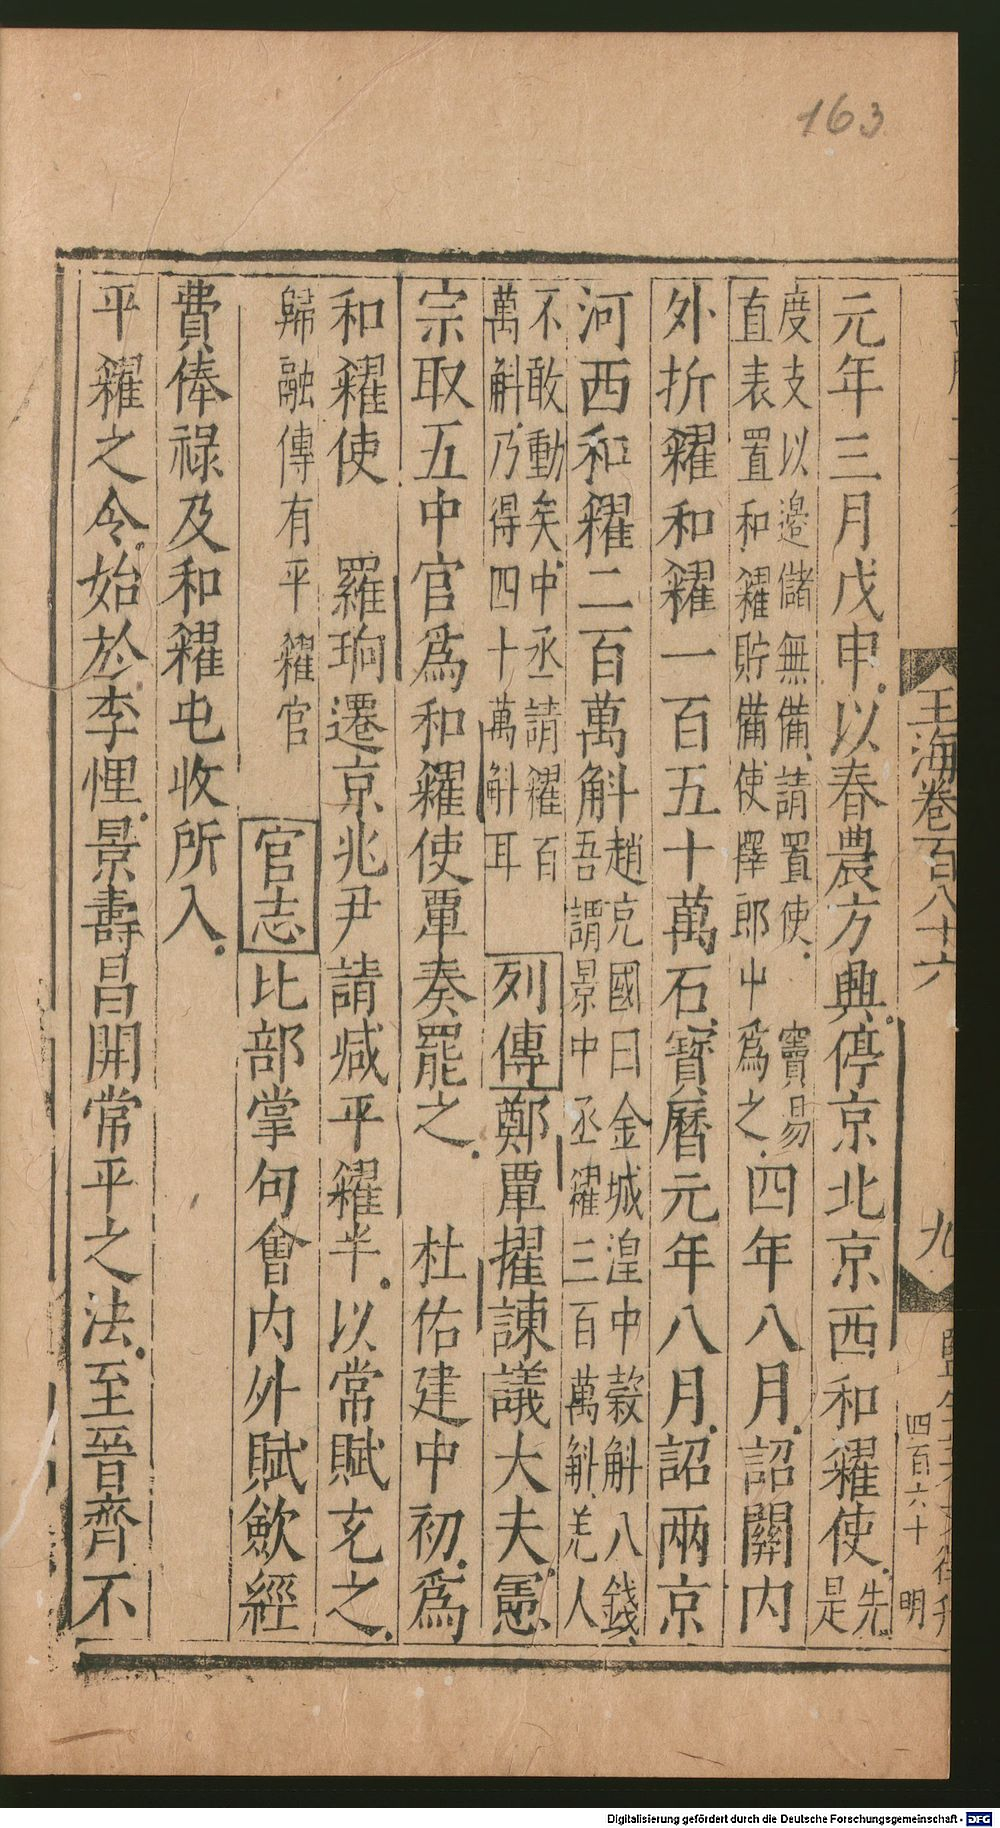 163
玉海卷百八十六
九
四百六十
明
元年三月戊申以春農方興停京北京西和糴使先是
度支以邊儲無備請置使竇易
直表置和糴貯備使擇郎中爲之四年八月詔關内
外折糴和糴一百五十萬石寶曆元年八月詔兩京
河西和糴二百萬斛趙充國曰金城湟中穀斛八錢吾謂景中丞糴三百萬斛羌人
不敢動矣中丞請糴百萬斛乃得四十萬斛耳列傳鄭覃擢諫議大夫憲
宗取五中官爲和糴使覃奏罷之 杜佑建中初爲
和糴使 羅珦遷京兆尹請减平糴半以常賦充之
歸融傳有平糴官 官志比部掌句會内外賦斂經
費俸祿及和糴屯收所入
平糴之令始於李悝景壽昌開常平之法至晉齊不
Digitalisierung gefördert durch die Deutsche Forschungsgemeinschaft - DFG